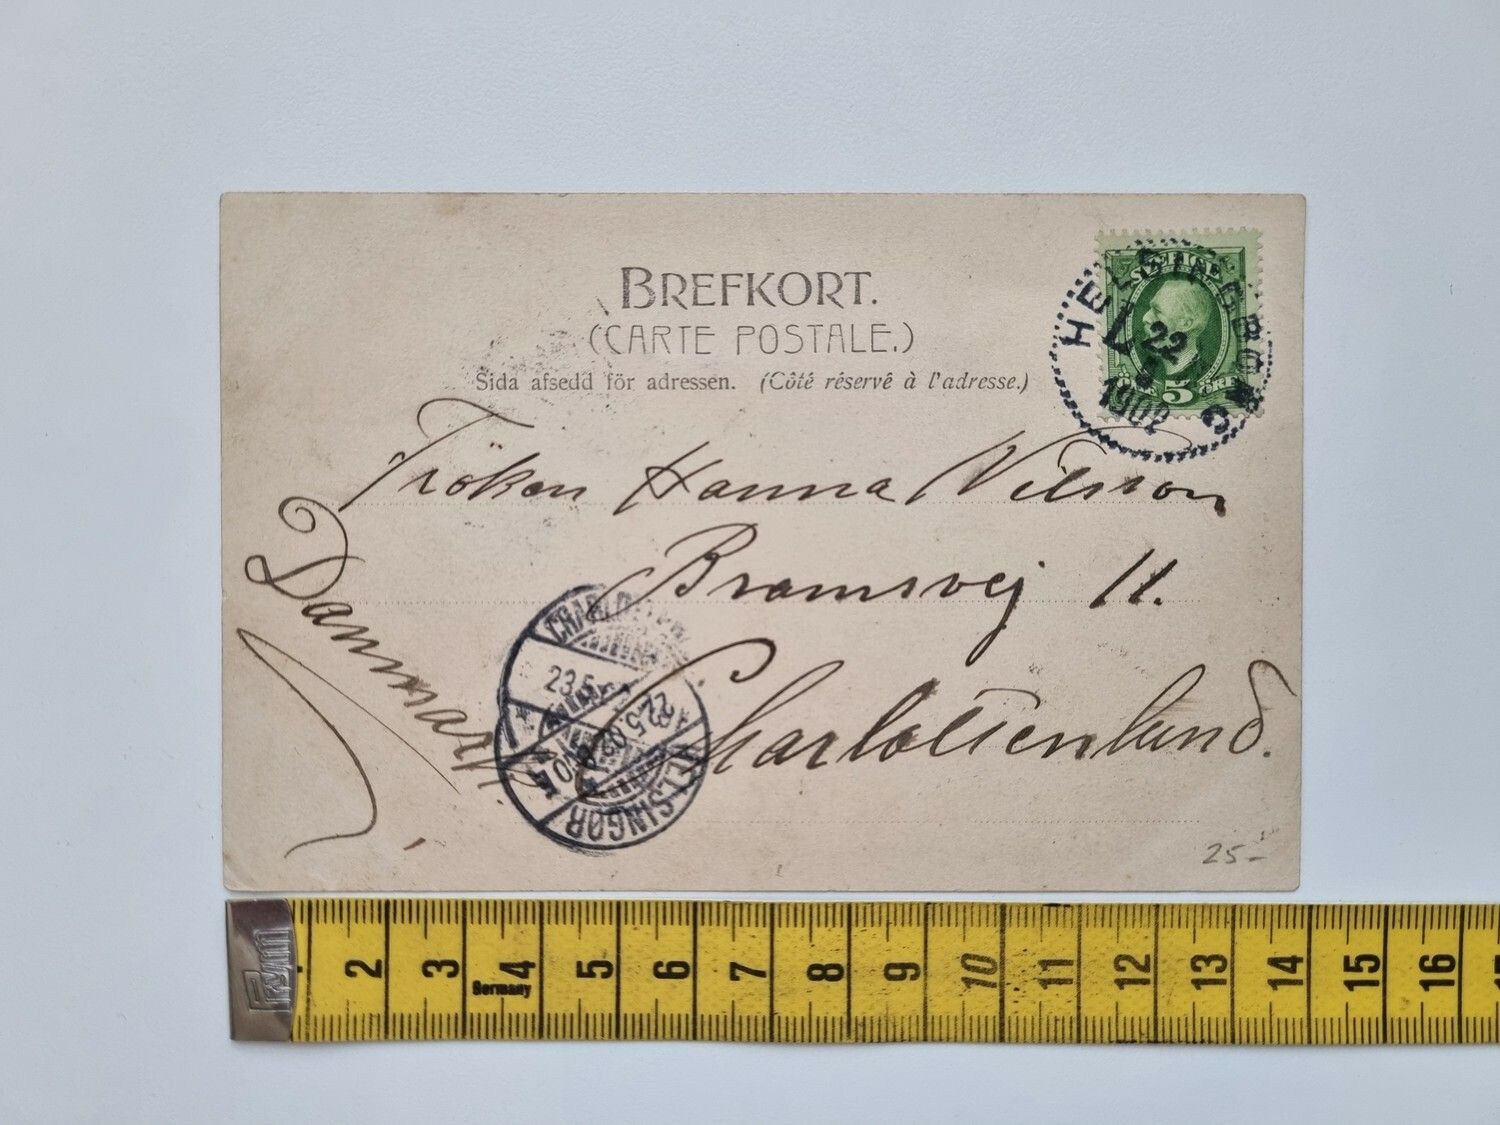 BREFKORT.
(CARTE POSTALE.)
Sida afsedd för adressen. (Côté réservé à l'adresse.)
SVERIGE
5 ÖRE
HELSINGBORG
22
5
1902
Fröken Hanna Nilsson
Bramsvej 11.
Charlottenlund.
Danmark
23.5
22.5.02
HELSINGØR
25-
Prym
2 3 4 5 6 7 8 9 10 11 12 13 14 15 16
Germany